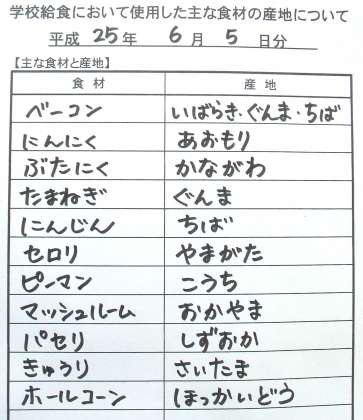 学校給食において使用した主な食材の産地について
平成 25年 6月 5日分
【主な食材と産地】
食材 産地
ベーコン いばらき・ぐんま・ちば
にんにく あおもり
ぶたにく かながわ
たまねぎ ぐんま
にんじん ちば
セロリ やまがた
ピーマン こうち
マッシュルーム おかやま
パセリ しずおか
きゅうり さいたま
ホールコーン ほっかいどう